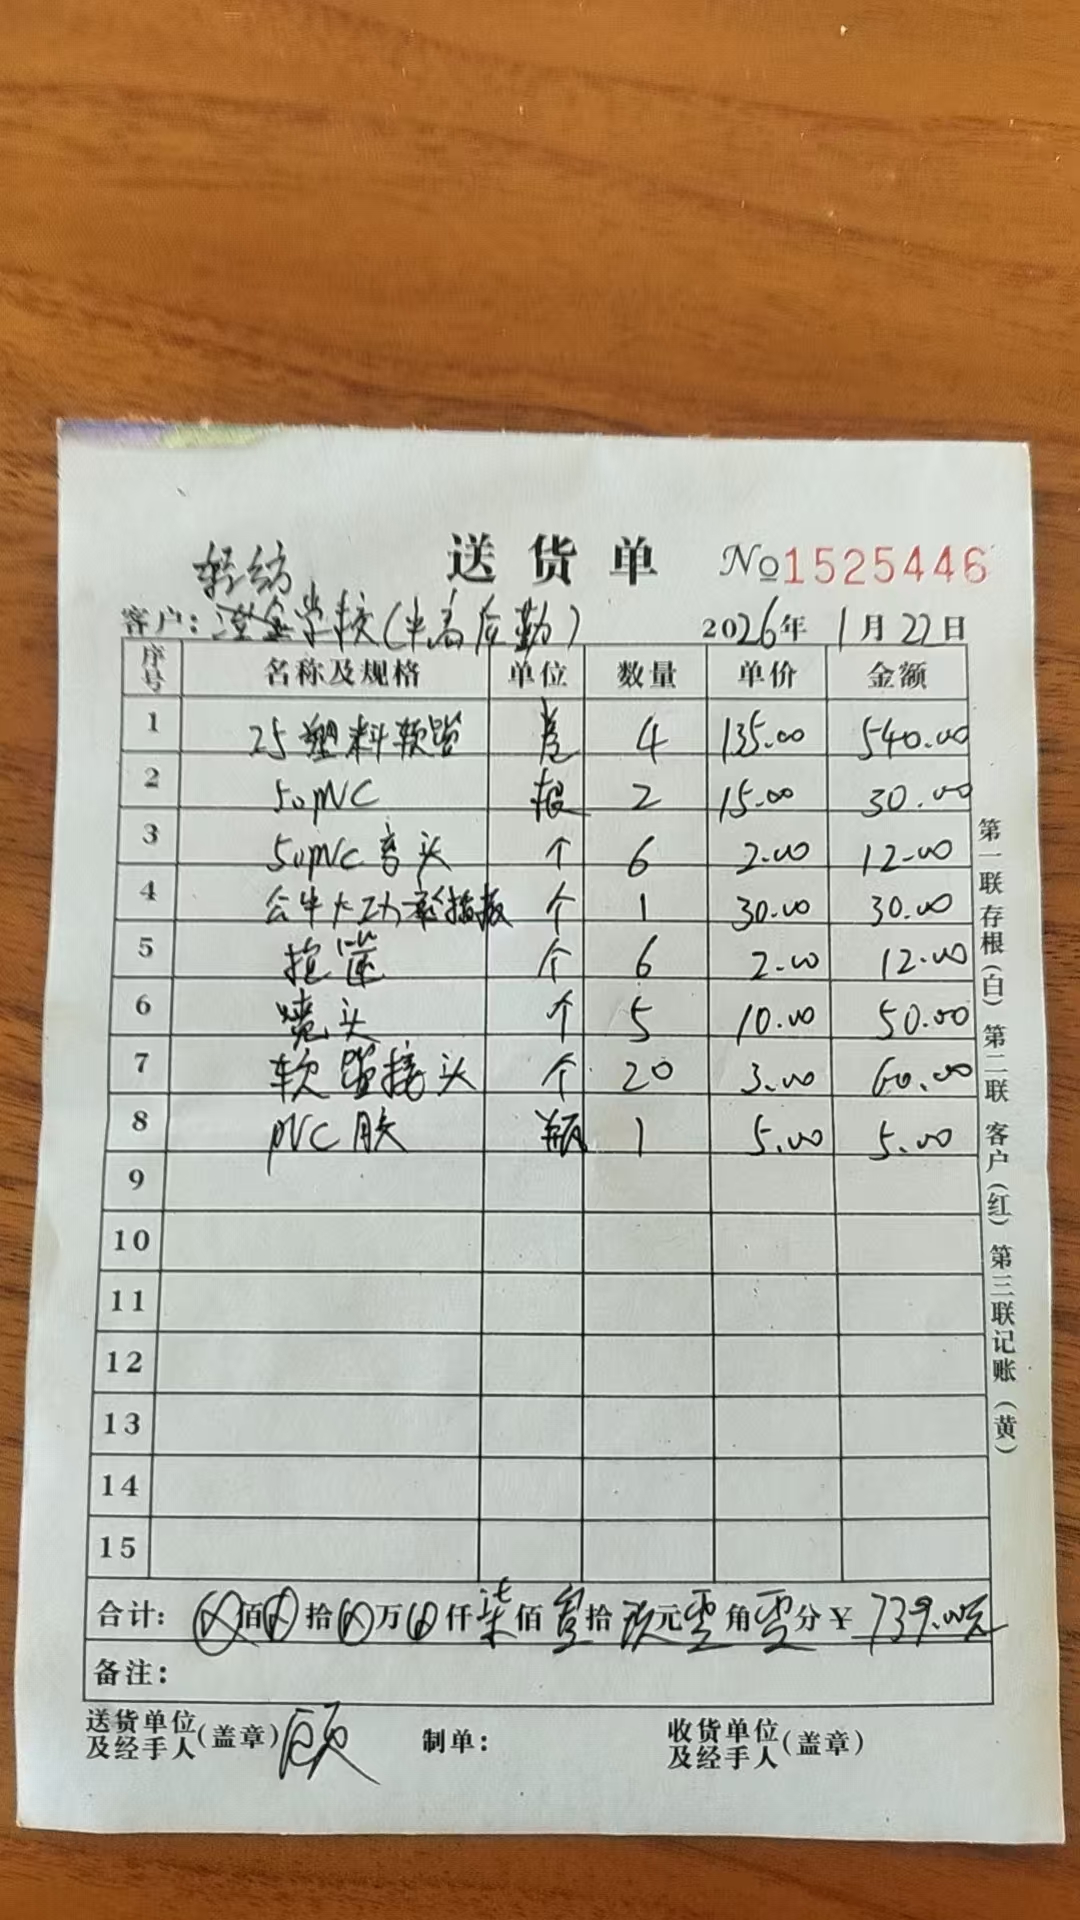 送货单 №1525446
轻纺
客户：澄金学校（半高后勤） 2026年1月22日
序号 名称及规格 单位 数量 单价 金额
1 25塑料软管 卷 4 135.00 540.00
2 50pVC 根 2 15.00 30.00
3 50pVC弯头 个 6 2.00 12.00
4 公牛大功率插板 个 1 30.00 30.00
5 个 6 2.00 12.00
6 喷头 个 5 10.00 50.00
7 软管接头 个 20 3.00 60.00
8 pVC胶 瓶 1 5.00 5.00
9
10
11
12
13
14
15
合计： 佰 拾 万 仟 柒佰 拾 玖元零角零分 ￥739.00元
备注：
送货单位及经手人（盖章） 顾 制单： 收货单位及经手人（盖章）
第一联存根（白） 第二联客户（红） 第三联记账（黄）